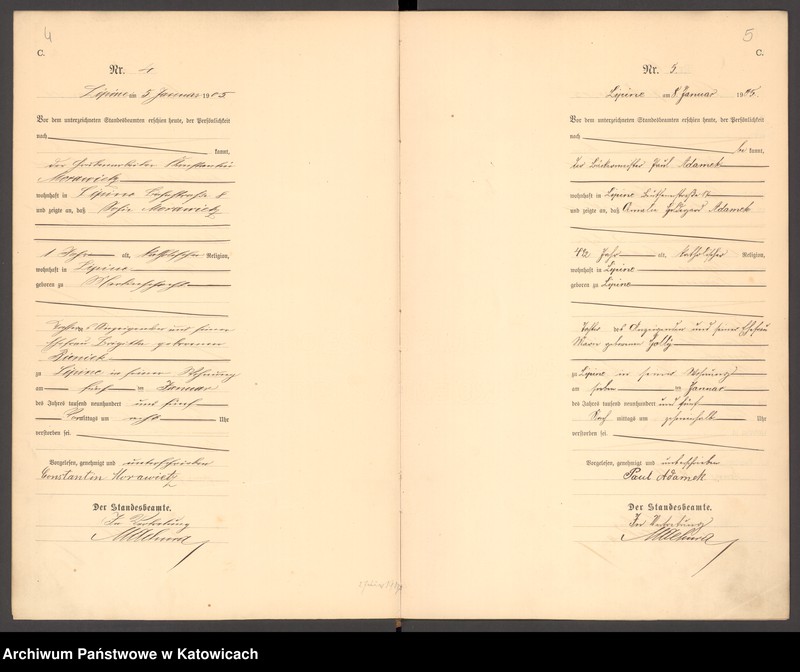 4
C.
Nr. 4
Lipine am 5 Januar 1905
Vor dem unterzeichneten Standesbeamten erschien heute, der Persönlichkeit
nach
kannt,
der Konstantin
Morawietz
wohnhaft in Lipine
und zeigte an, daß Sofie Morawietz
1 Jahr alt, katholischer Religion,
wohnhaft in Lipine
geboren zu
Tochter des Anzeigenden und seiner
Ehefrau Brigitta geborenen
Bieniek
zu Lipine in seiner Wohnung
am fünf ten Januar
des Jahres tausend neunhundert und fünf
Vormittags um acht Uhr
verstorben sei.
Vorgelesen, genehmigt und unterschrieben
Constantin Morawietz
Der Standesbeamte.
In Vertretung
5
C.
Nr. 5.
Lipine am 8. Januar 1905.
Vor dem unterzeichneten Standesbeamten erschien heute, der Persönlichkeit
nach
be kannt,
der Bäckermeister Paul Adamek
wohnhaft in Lipine
und zeigte an, daß Amalie Hildegard Adamek
4 1/2 Jahr alt, katholischer Religion,
wohnhaft in Lipine
geboren zu Lipine
Tochter des Anzeigenden und seiner Ehefrau
Marie geborenen
zu Lipine in seiner Wohnung
am sieben ten Januar
des Jahres tausend neunhundert und fünf
Nach mittags um Uhr
verstorben sei.
Vorgelesen, genehmigt und unterschrieben
Paul Adamek
Der Standesbeamte.
In Vertretung
Archiwum Państwowe w Katowicach